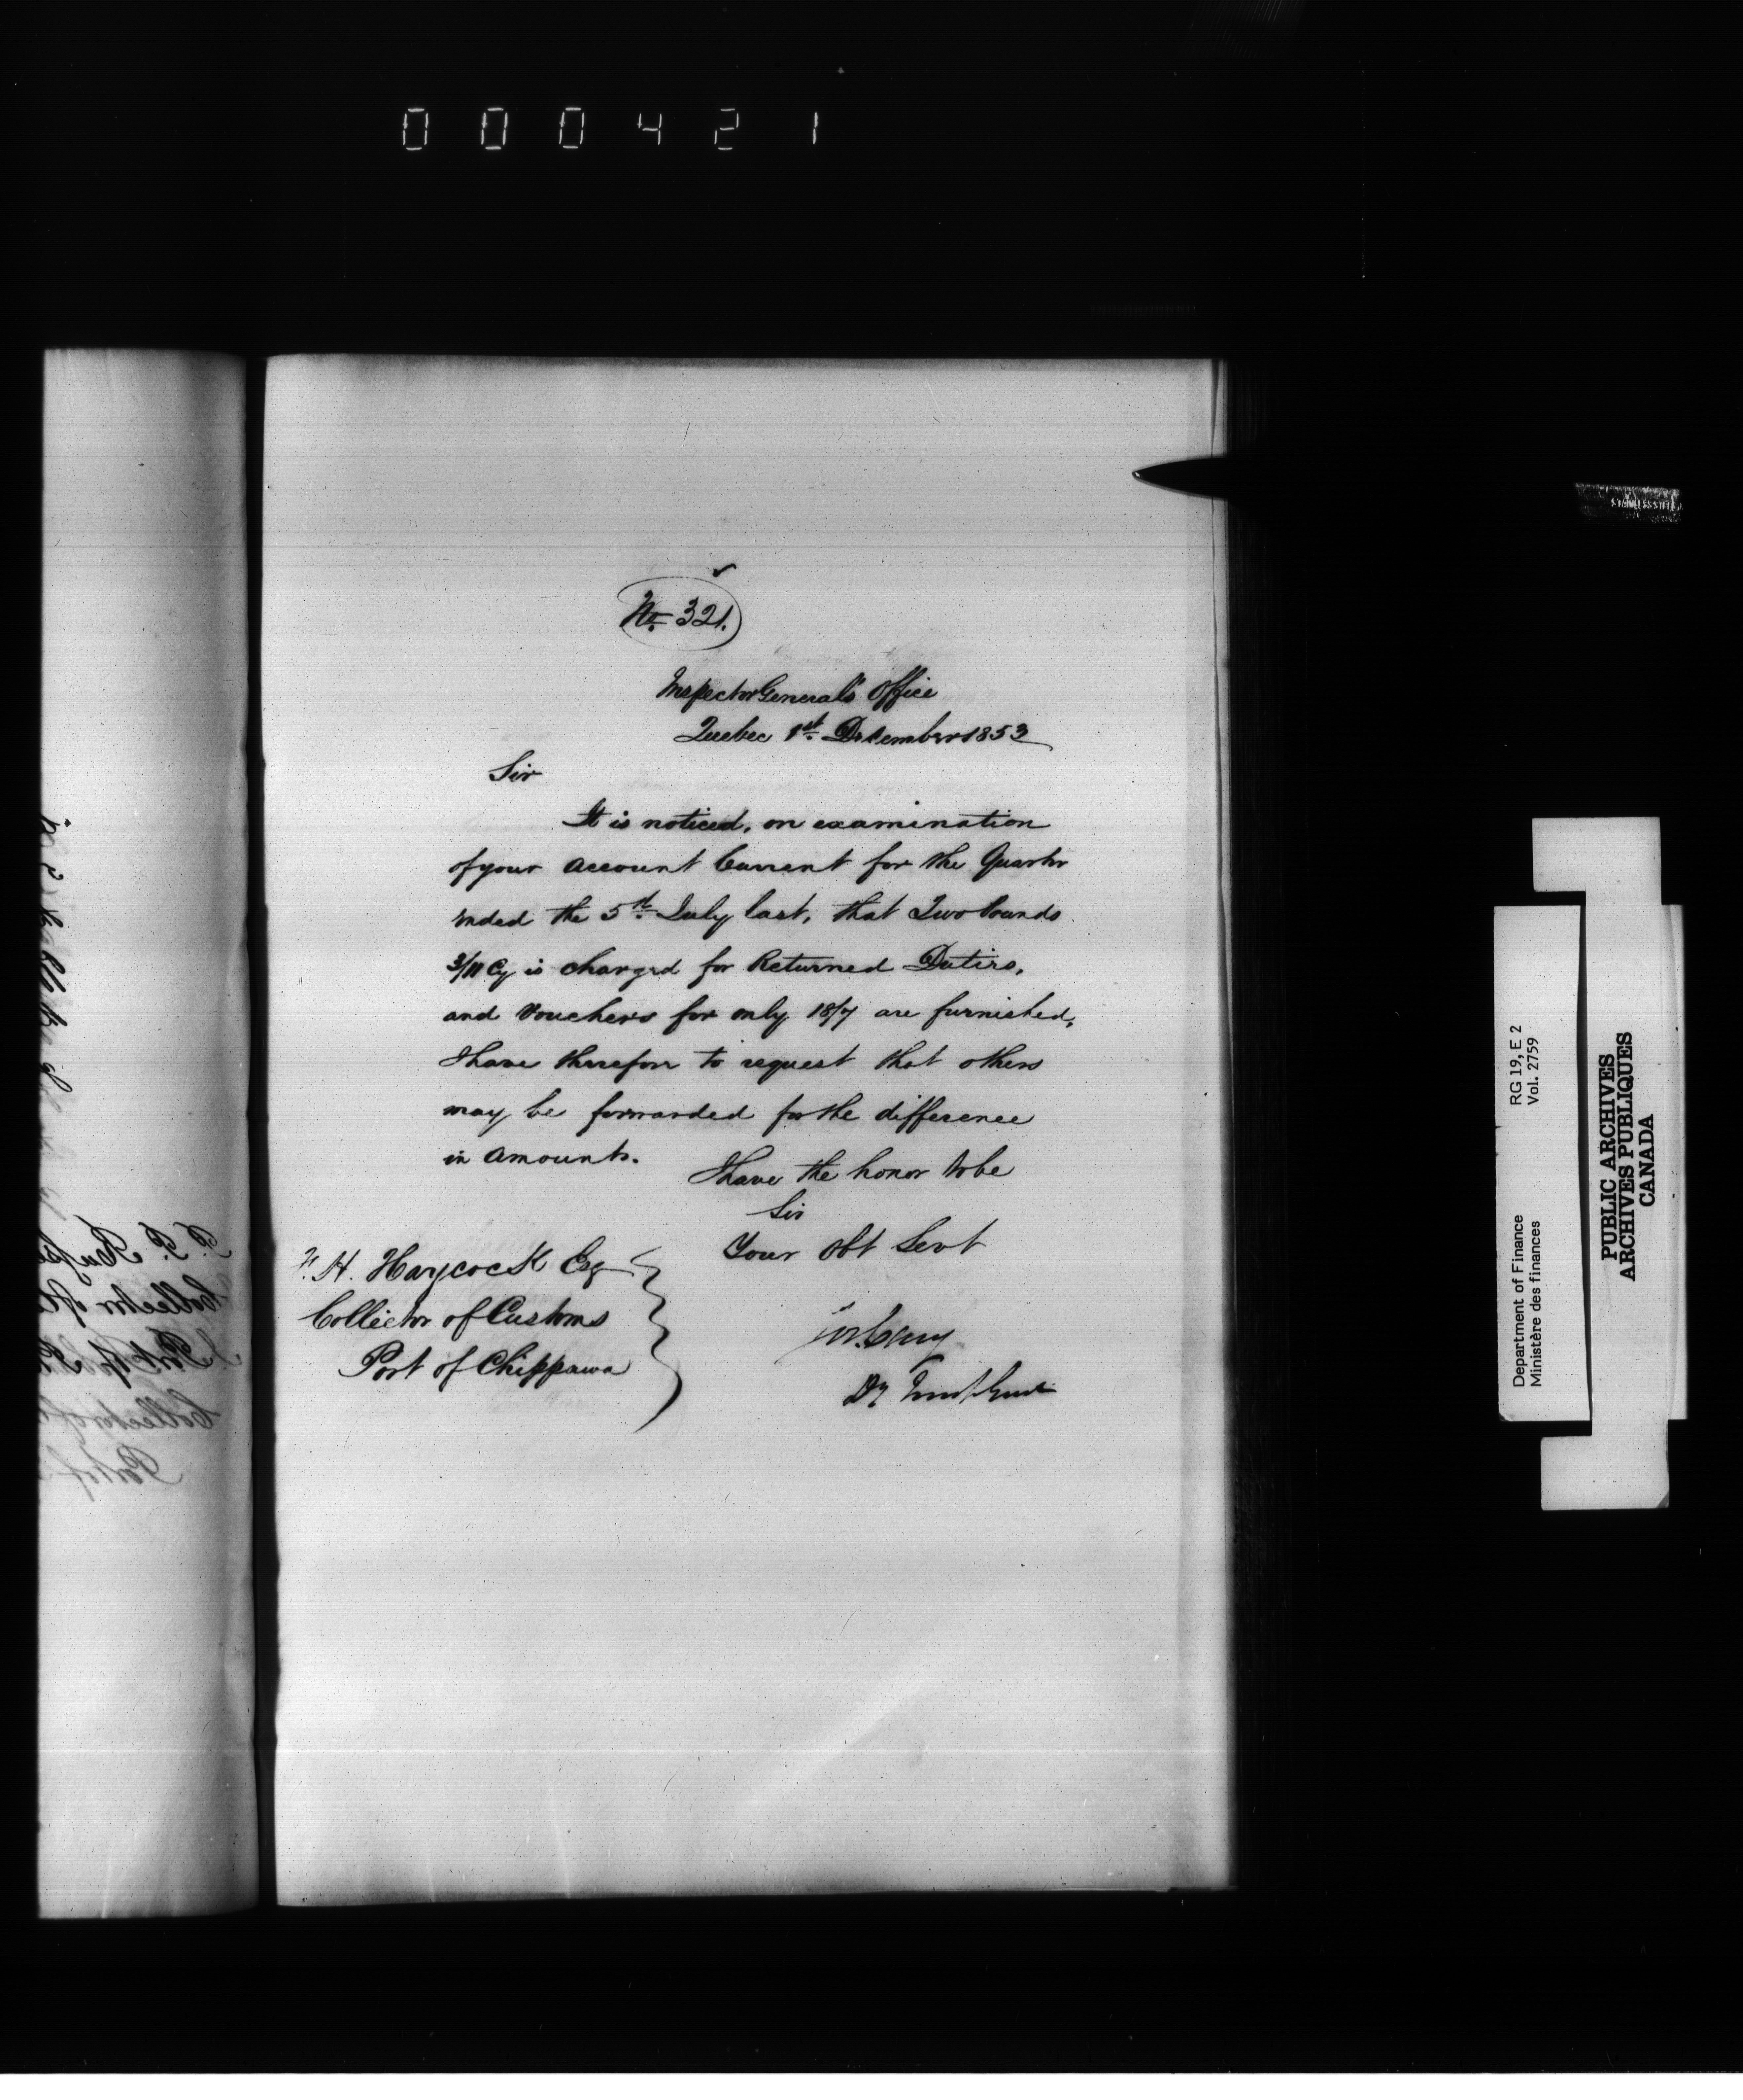 000421
No. 321.
Inspector General's Office
Quebec 1st December 1853
Sir
It is noticed, on examination
of your Account Current for the Quarter
ended the 5th July last, that Two Pounds
3/11 Cy is charged for Returned Duties,
and Vouchers for only 18/7 are furnished,
I have therefore to request that others
may be forwarded for the difference
in Amounts.
I have the honor to be
Sir
Your Obt Servt
W. Cary
Dy
H. Haycock Esq
Collector of Customs
Port of Chippawa
Department of Finance RG 19, E 2
Ministère des finances Vol. 2759
PUBLIC ARCHIVES
ARCHIVES PUBLIQUES
CANADA